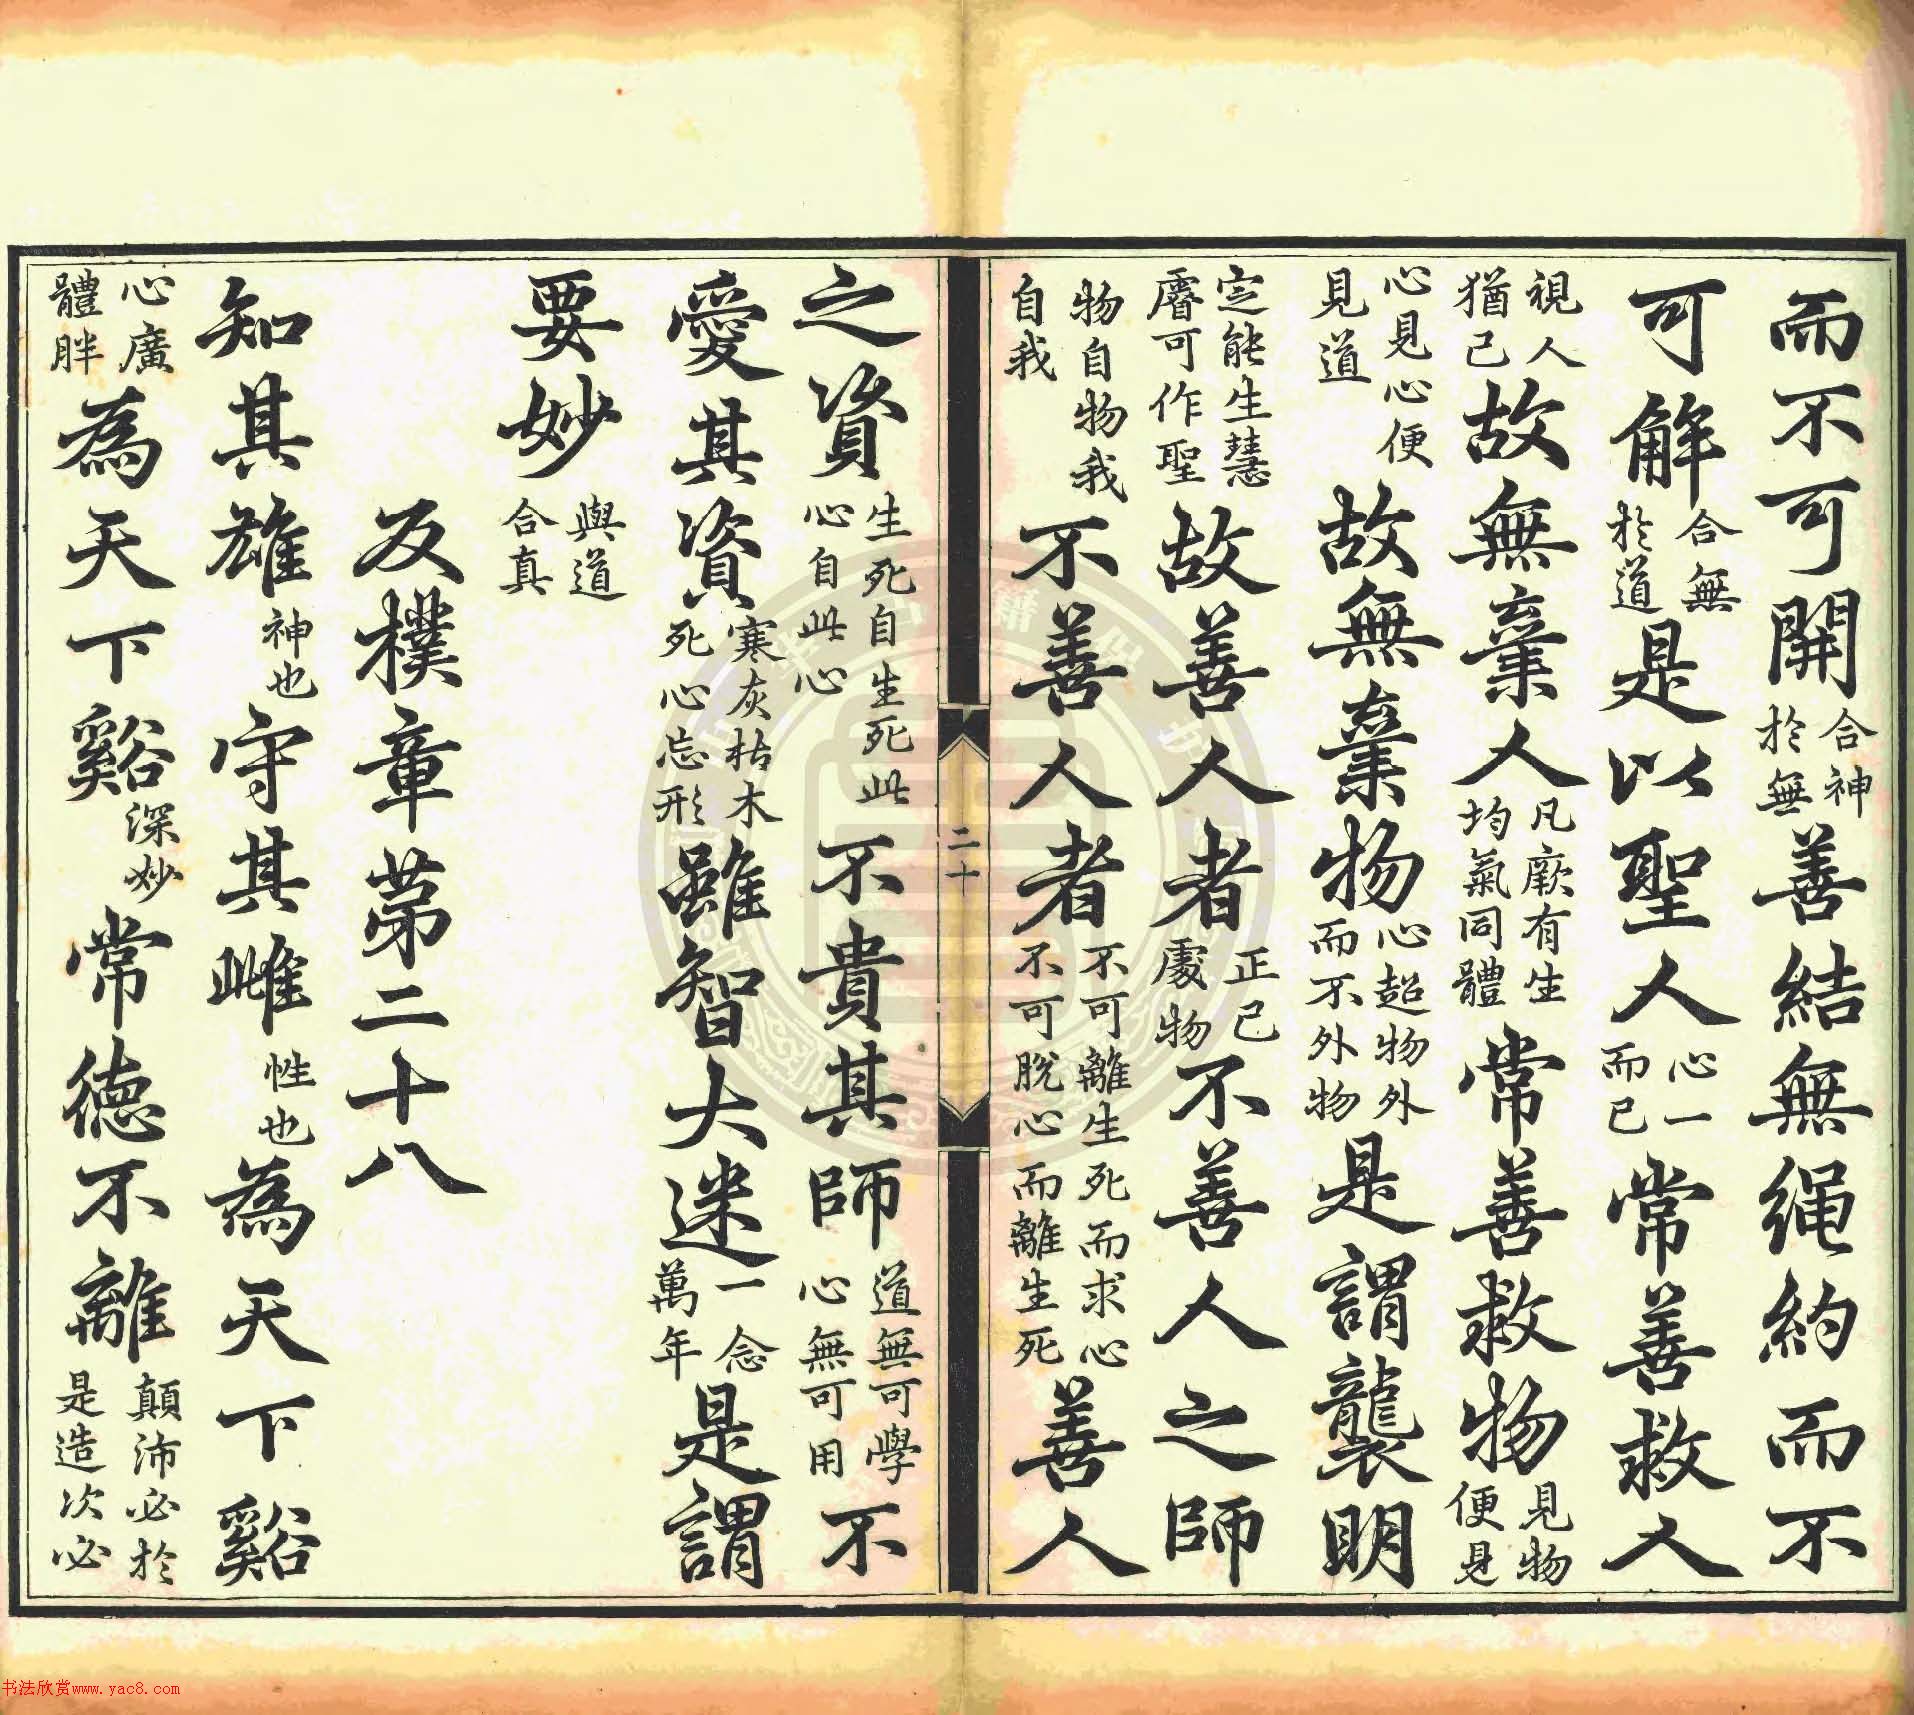 而不可開合神於無善結無繩約而不
可解合無於道是以聖人心一而已常善救人
視人猶己故無棄人凡厥有生均氣同體常善救物見物便見
心見心便見道故無棄物心超物外而不外物是謂襲明
定能生慧睿可作聖故善人者正己處物不善人之師
物自物我自我不善人者不可離生死而求心不可脫心而離生死善人
二十
之資生死自生死此心自此心不貴其師道無可學心無可用不
愛其資寒灰枯木死心忘形雖智大迷一念萬年是謂
要妙與道合真
反樸章第二十八
知其雄神也守其雌性也為天下谿
心廣體胖為天下谿深妙常德不離顛沛必於是造次必
书法欣赏www.yac8.com